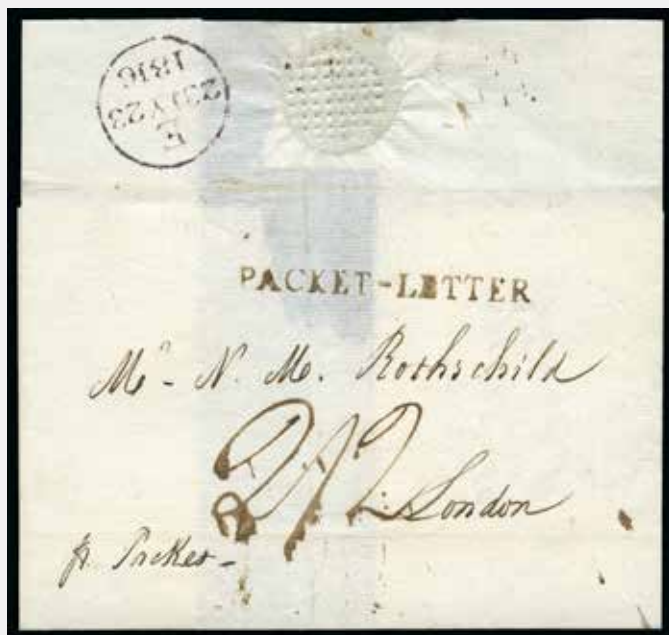 1816
PACKET-LETTER
Mr. N. M. Rothschild
2/2 London
pr. Packet